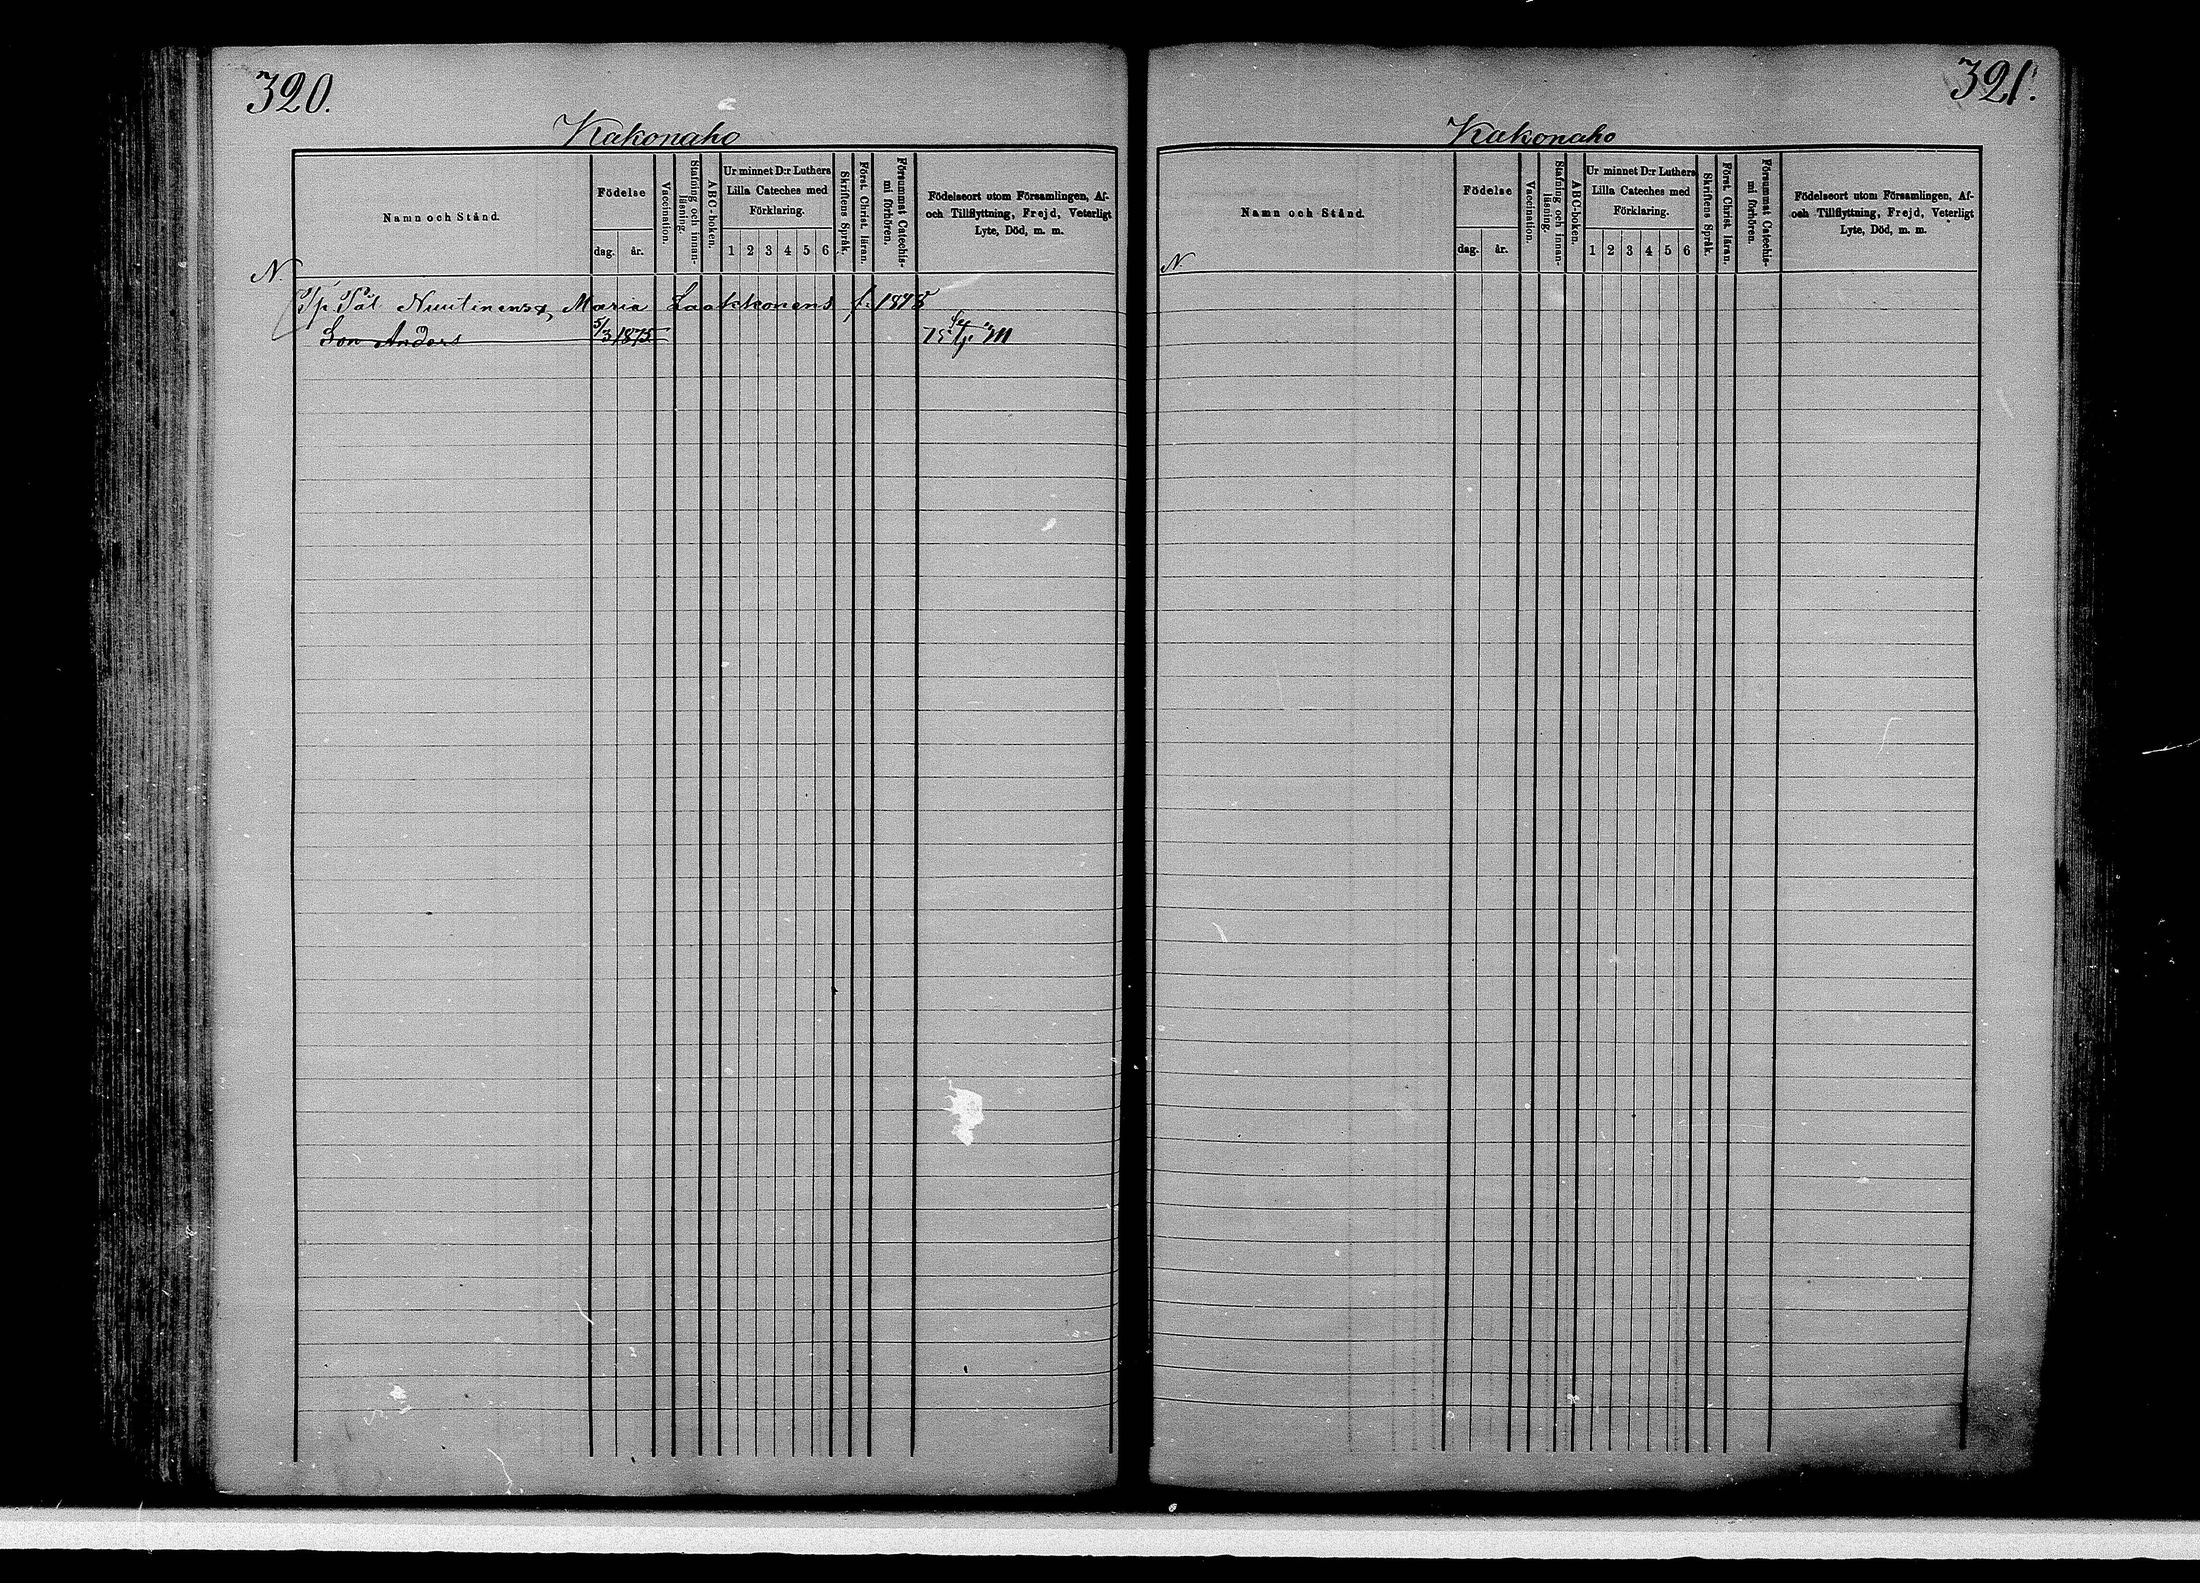 320.
Kakonaho
Namn och Stånd.
Födelse
dag. år.
Vaccination.
Stafning och innan-
läsning.
ABC-boken.
Ur minnet D:r Luthers
Lilla Cateches med
Förklaring.
1 2 3 4 5 6
Skriftens Språk.
Först. Christ. läran.
Försummat Catechis-
mi förhören.
Födelseort utom Församlingen, Af-
och Tillflyttning, Frejd, Veterligt
Lyte, Död, m. m.
N.
Pål Nuutinens Maria Laakkonens f. 1848
Son Anders 5/3 1875
321.
Kakonaho
Namn och Stånd.
Födelse
dag. år.
Vaccination.
Stafning och innan-
läsning.
ABC-boken.
Ur minnet D:r Luthers
Lilla Cateches med
Förklaring.
1 2 3 4 5 6
Skriftens Språk.
Först. Christ. läran.
Försummat Catechis-
mi förhören.
Födelseort utom Församlingen, Af-
och Tillflyttning, Frejd, Veterligt
Lyte, Död, m. m.
N.